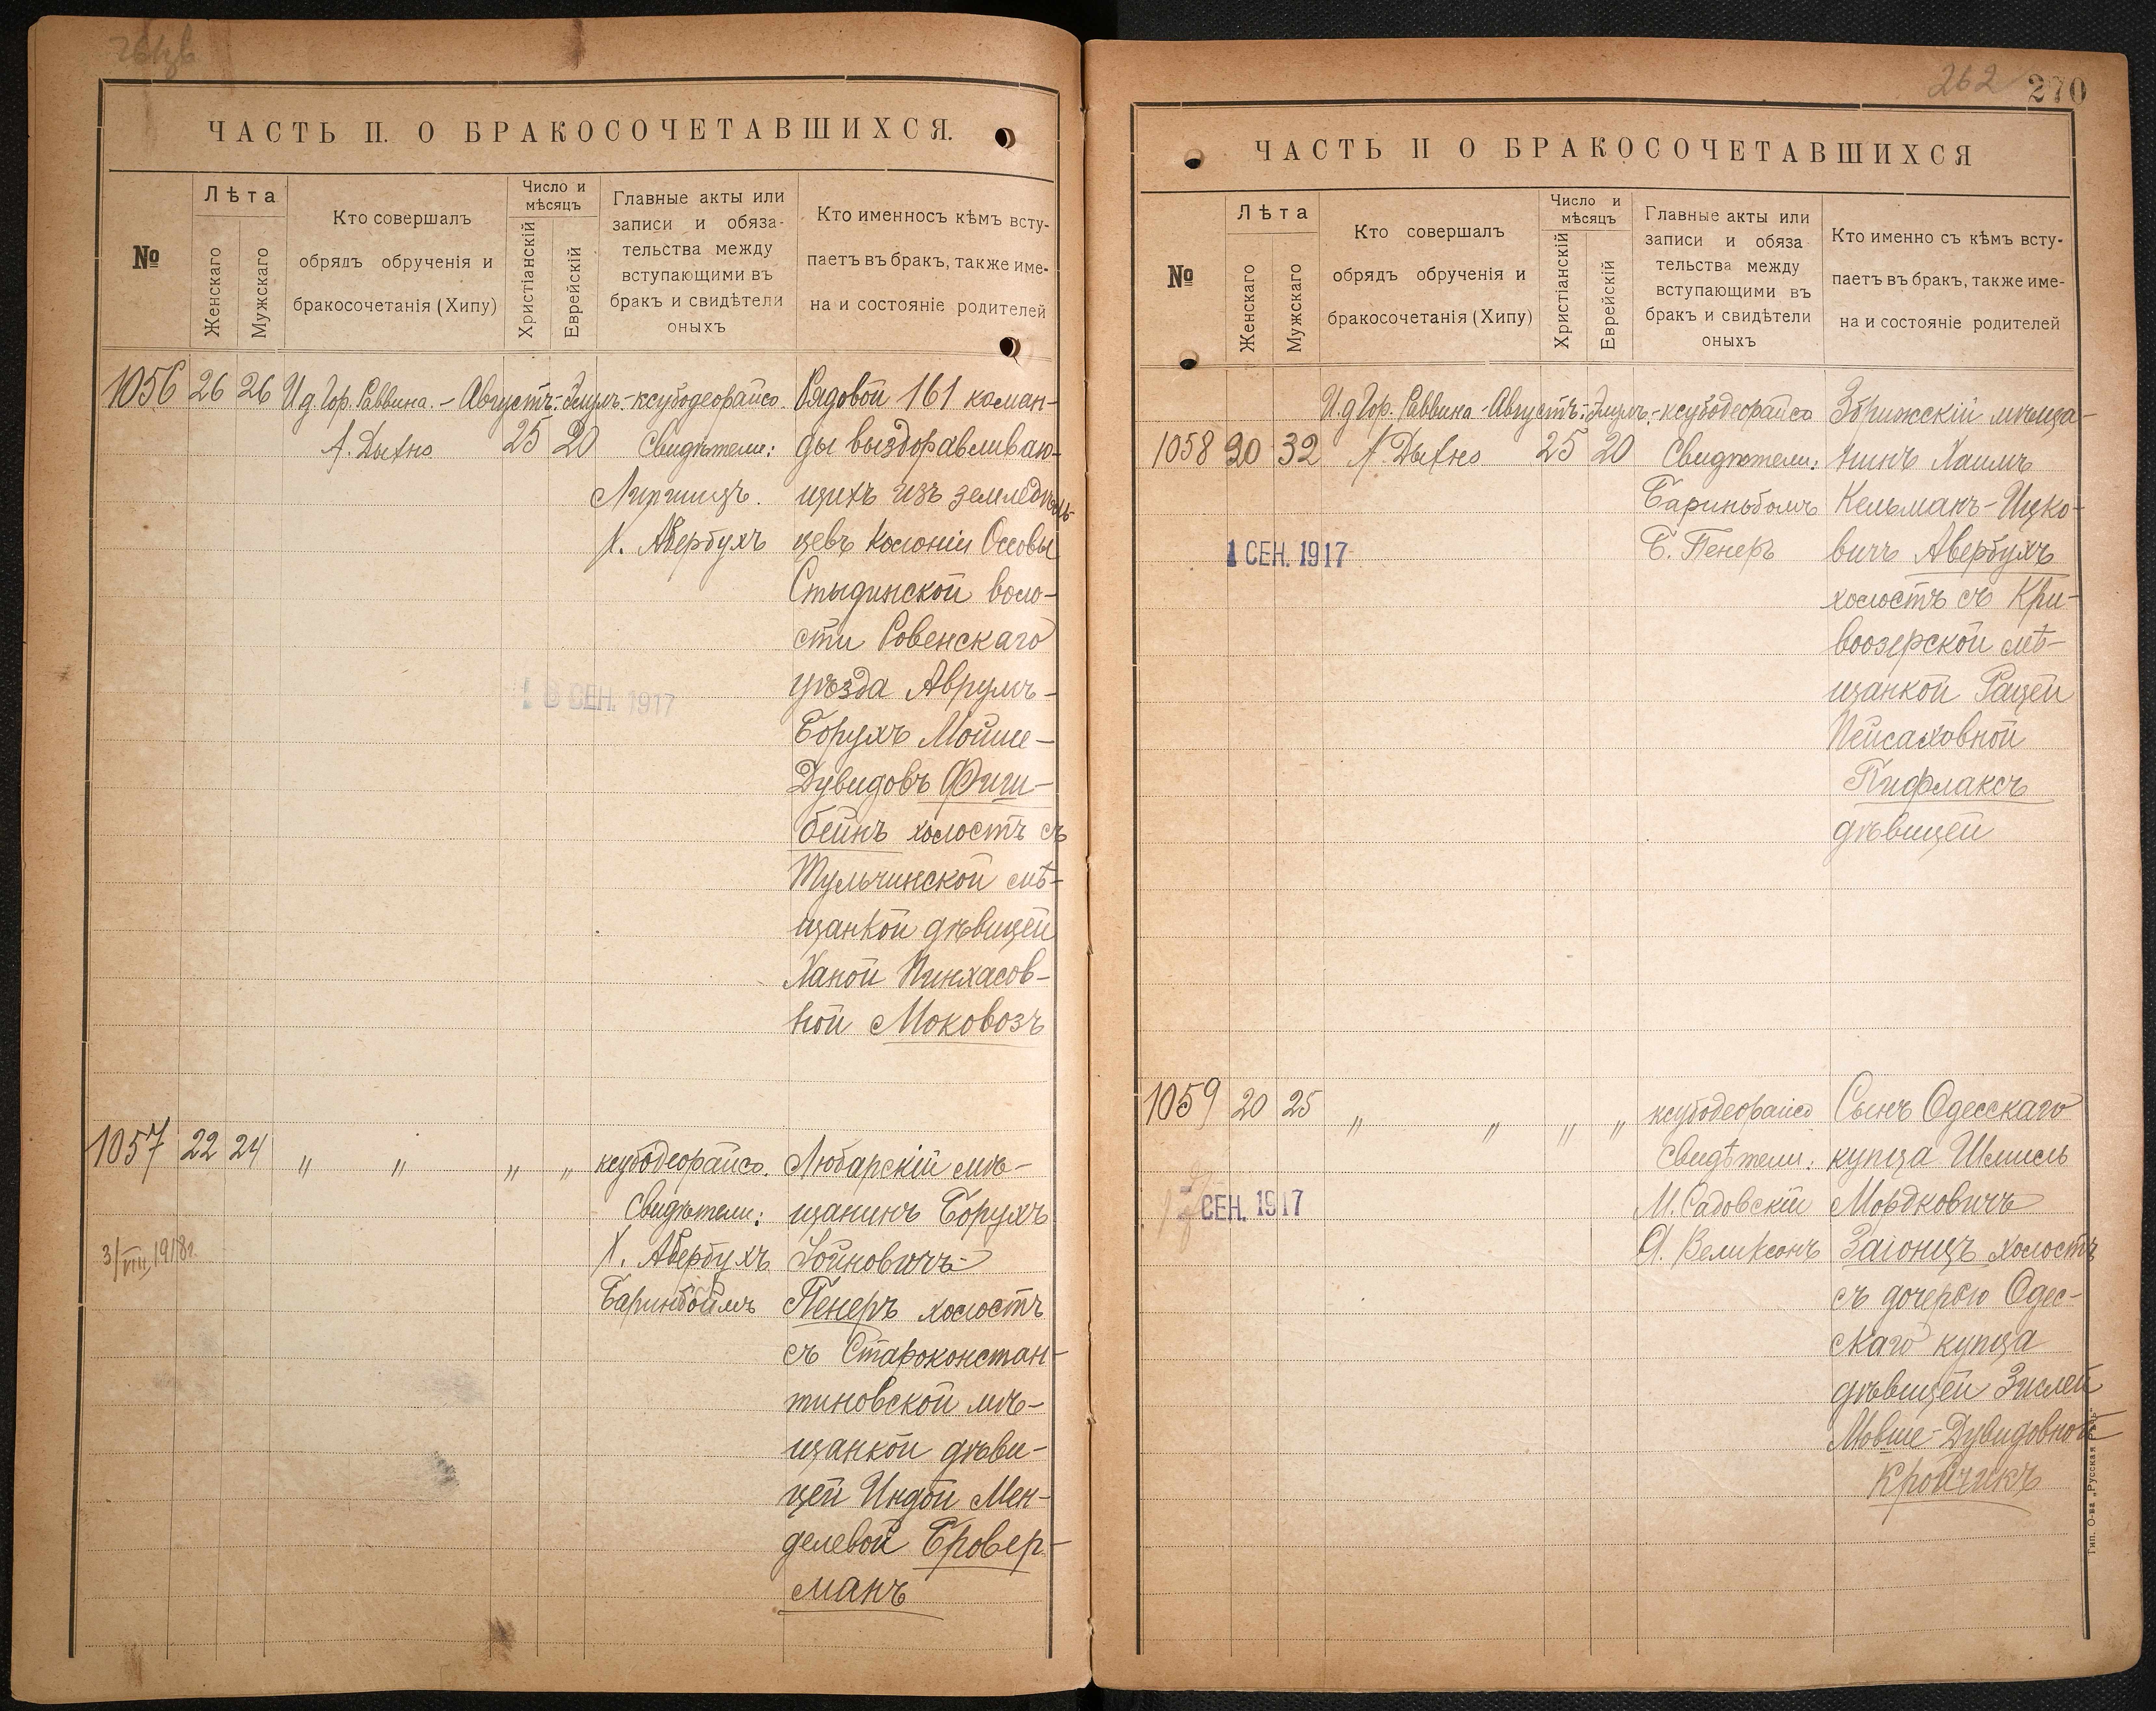 ЧАСТЬ II. О БРАКОСОЧЕТАВШИХСЯ.
№
Лѣта
Женскаго
Мужскаго
Кто совершалъ
обрядъ обрученія и
бракосочетанія (Хипу)
Число и
мѣсяцъ
Христіанскій
Еврейскій
Главные акты или
записи и обяза-
тельства между
вступающими въ
бракъ и свидѣтели
оныхъ
Кто именносъ кѣмъ всту-
паетъ въ бракъ, также име-
на и состояніе родителей
1056 26 26 И.д. Гор. Раввина. - Августъ: Элулъ. - ксубодеорайсо.
А. Дыхно 25 20 Свидѣтели:
Липшицъ.
Х. Авербухъ
Рядовой 161 коман-
ды выздоравливаю-
щихъ изъ земледѣль-
цевъ колоніи Оссовы
Стыдинской воло-
сти Ровенскаго
уѣзда Аврумъ-
Борухъ Мойше-
Дувидовъ Фиш-
бейнъ холостъ съ
Тульчинской мѣ-
щанкой дѣвицей
Ханой Пинхасов-
ной Моковозъ
СЕН. 1917
1057 22 24 " " " " ксубодеорайсо.
Свидѣтели:
Х. Авербухъ
Баринбоймъ
3/VIII 1918г.
Любарскій мѣ-
щанинъ Борухъ
Іойновичъ
Пенеръ холостъ
съ Староконстан-
тиновской мѣ-
щанкой дѣви-
цей Индой Мен-
делевой Бровер-
манъ
262 270
ЧАСТЬ II О БРАКОСОЧЕТАВШИХСЯ
№
Лѣта
Женскаго
Мужскаго
Кто совершалъ
обрядъ обрученія и
бракосочетанія (Хипу)
Число и
мѣсяцъ
Христіанскій
Еврейскій
Главные акты или
записи и обяза
тельства между
вступающими въ
бракъ и свидѣтели
оныхъ
Кто именно съ кѣмъ всту-
паетъ въ бракъ, также име-
на и состояніе родителей
И.д Гор. Раввина - Августъ: Элулъ. - ксубодеорайсо
1058 30 32 А. Дыхно 25 20 Свидѣтели:
Бариньбомъ
Б. Пенеръ
1 СЕН. 1917
Збрижскій мѣща-
нинъ Хаимъ
Кельманъ-Ицко-
вичъ Авербухъ
холостъ съ Кри-
воозерской мѣ-
щанкой Рацей
Пейсаховной
Пифлаксъ
дѣвицей
1059 20 25 " " " " ксубодеорайсо
Свидѣтели:
М. Садовскій
Я. Великсонъ
СЕН. 1917
Сынъ Одесскаго
купца Шмиль
Мордковичъ
Заіонцъ холостъ
съ дочерью Одес-
скаго купца
дѣвицей Зислей
Мовше-Дувидовной
Кройчикъ
Тип. О-ва „Русская Рѣчь“